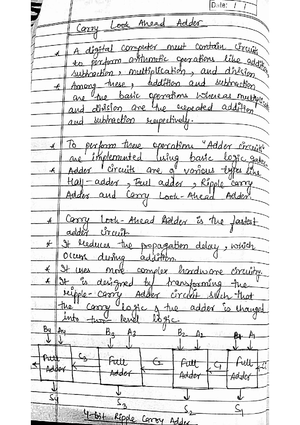 Date: / /
Carry Look Ahead Adder
* A digital computer must contain circuits
to perform arithmetic operations like addition,
subtraction, multiplication, and division
* Among these, addition and subtraction
are the basic operations whereas multiplication
and division are the repeated addition
and subtraction respectively.
* To perform these operations "Adder circuits"
are implemented using basic logic gates.
* Adder circuits are of various types like
Half-adder, Full adder, Ripple Carry
Adder and Carry Look-Ahead Adder.
* Carry Look-Ahead Adder is the fastest
adder circuit
* It reduces the propagation delay, which
occurs during addition
* It uses more complex hardware circuitry
* It is designed by transforming the
Ripple-Carry Adder circuit such that
the carry logic of the adder is changed
into two-level logic
B4 A4 B3 A3 B2 A2 B1 A1
Full Adder C3 Full Adder C2 Full Adder C1 Full Adder
S4 S3 S2 S1
4-bit Ripple Carry Adder